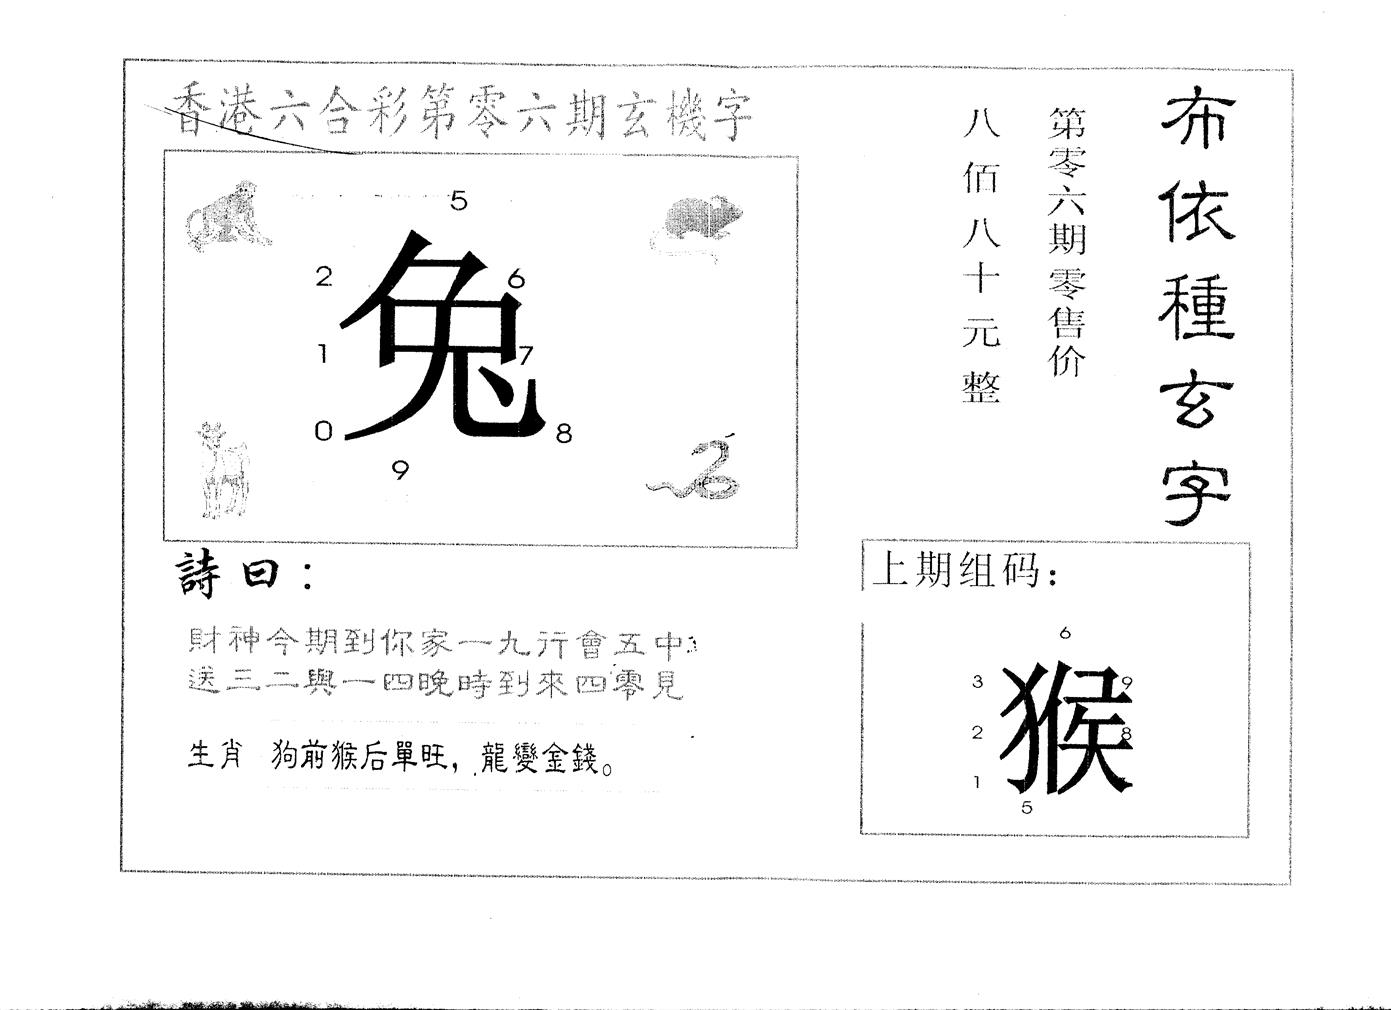 香港六合彩第零六期玄機字
5
2
6
兔
1
7
0
8
9
詩曰：
財神今期到你家一九行會五中
送三二與一四晚時到來四零見
生肖 狗前猴后單旺，龍變金錢。
布依種玄字
第零六期零售价
八佰八十元整
上期组码：
6
3
9
猴
2
8
1
5